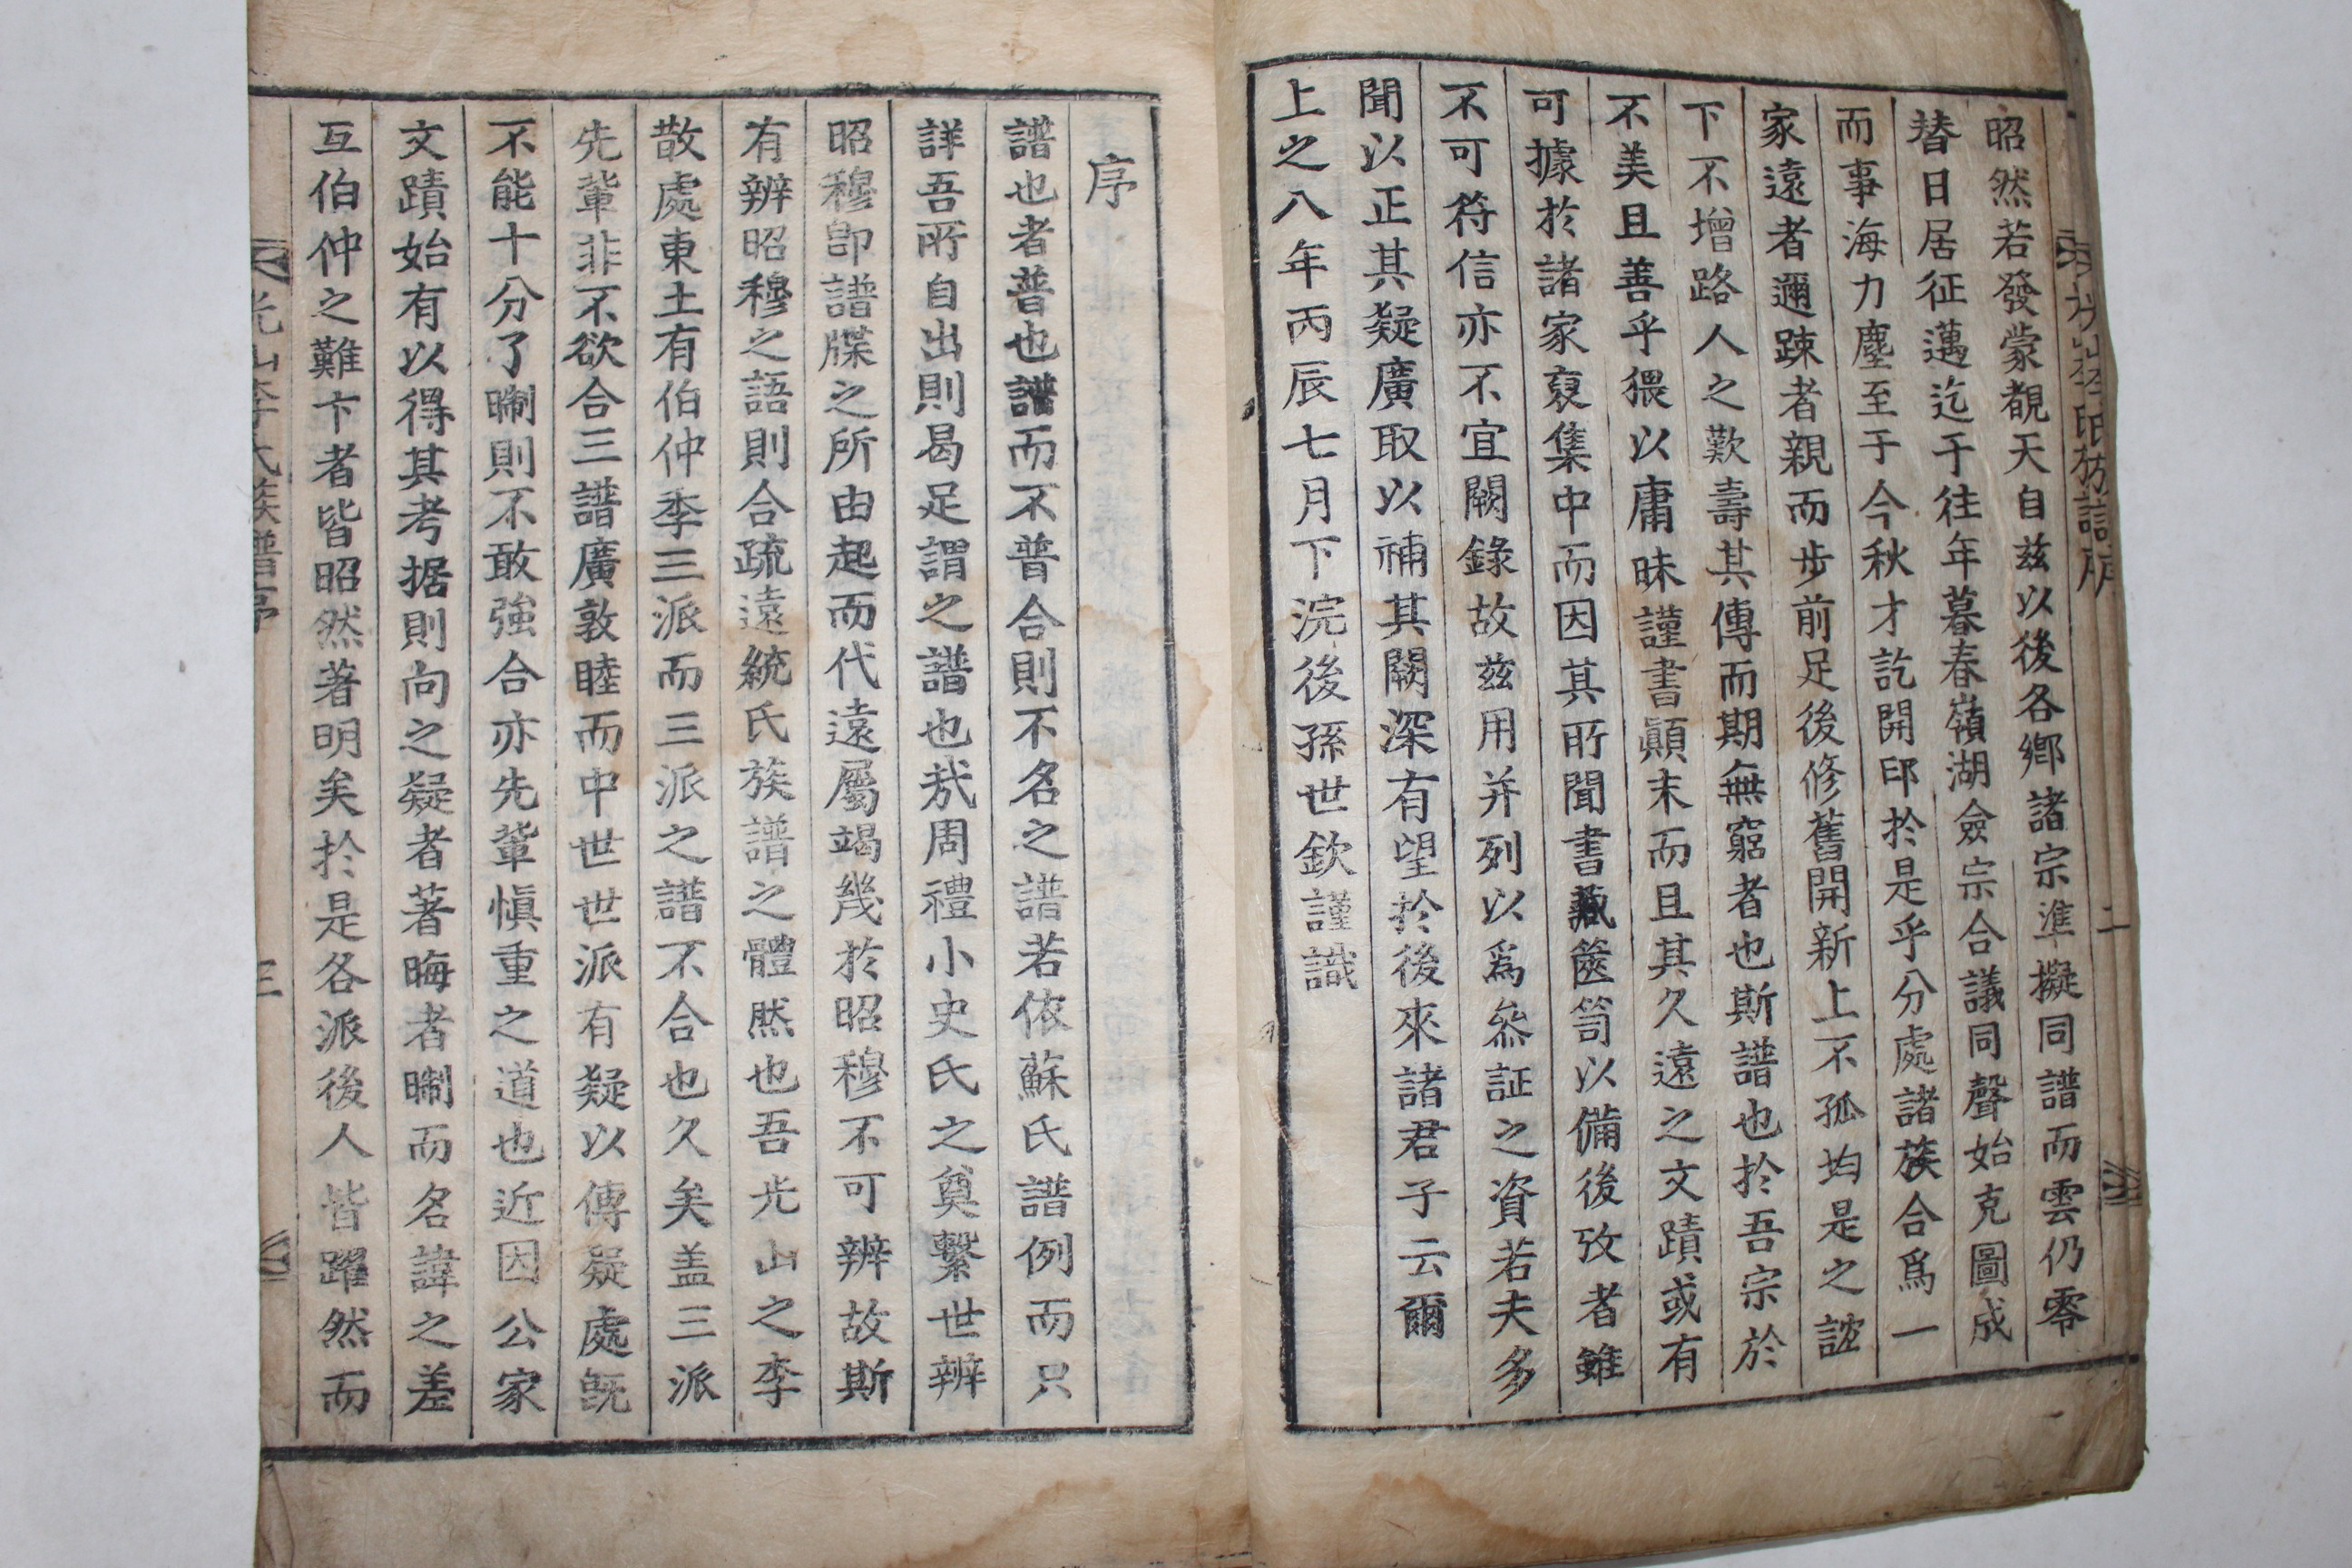 昭然若發蒙覩天自玆以後各鄕諸宗準擬同譜而雲仍零
替日居征邁迄于往年暮春嶺湖僉宗合議同聲始克圖成
而事海力塵至于今秋才訖開印於是乎分處諸族合爲一
家遠者邇踈者親而步前足後修舊開新上不孤均是之誼
下不增路人之歎壽其傳而期無窮者也斯譜也於吾宗於
不美且善乎猥以庸昧謹書顚末而且其久遠之文蹟或有
可據於諸家裒集中而因其所聞書藏篋笥以備後攷者雖
不可符信亦不宜闕錄故玆用并列以爲叅証之資若夫多
聞以正其疑廣取以補其闕深有望於後來諸君子云爾
上之八年丙辰七月下浣後孫世欽謹識
二
序
譜也者普也譜而不普合則不名之譜若依蘇氏譜例而只
詳吾所自出則曷足謂之譜也㢤周禮小史氏之奠繫世辨
昭穆卽譜牒之所由起而代遠屬竭幾於昭穆不可辨故斯
有辨昭穆之語則合疏遠統氏族譜之體然也吾光山之李
散處東土有伯仲季三派而三派之譜不合也久矣盖三派
先輩非不欲合三譜廣敦睦而中世世派有疑以傳疑處旣
不能十分了晣則不敢強合亦先輩愼重之道也近因公家
文蹟始有以得其考据則向之疑者著晦者晣而名諱之差
互伯仲之難卞者皆昭然著明矣於是各派後人皆躍然而
光山李氏族譜序
三